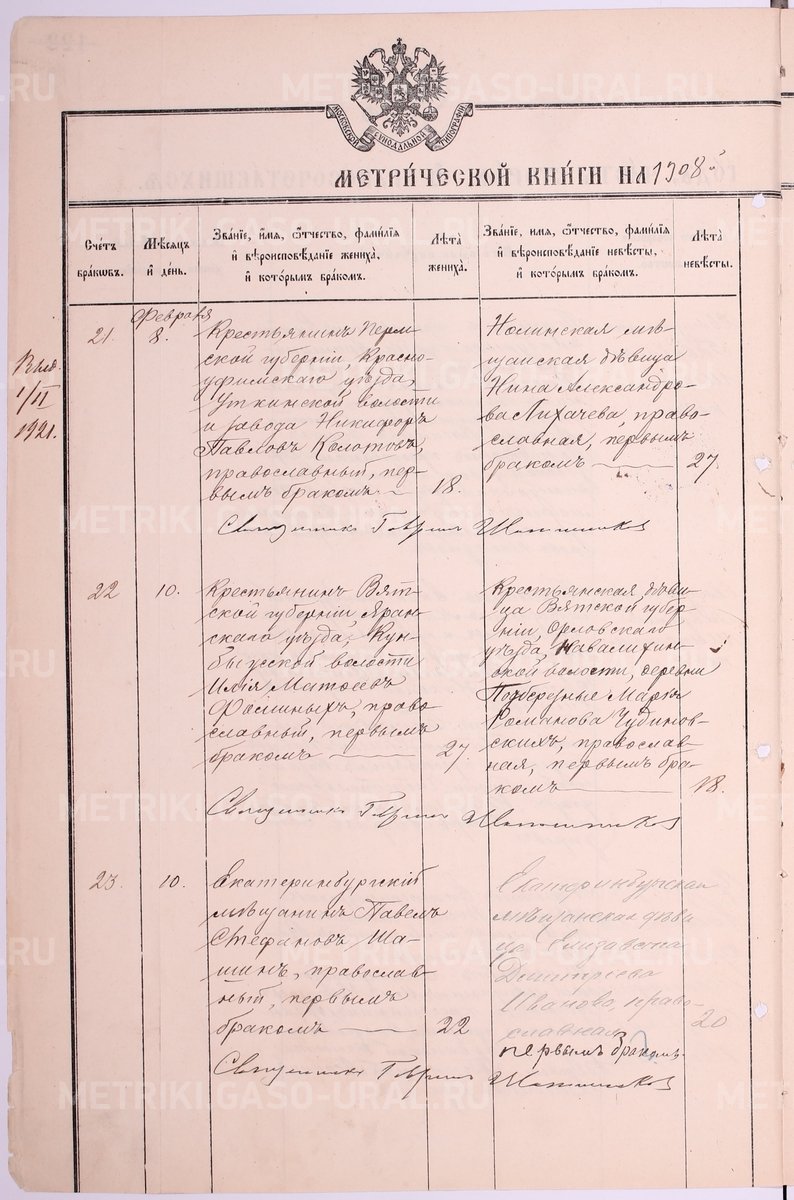 МОСКОВСКОЙ СѴНОДАЛЬНОЙ ТИПОГРАФІИ
МЕТРИ́ЧЕСКОЙ КНИ́ГИ НА 1908
Сче́тъ бра́кѡвъ.
Мѣ́сяцъ и́ де́нь.
Зва́нїе, и́мѧ, ѻ҆́тчество, фами́лїѧ и́ вѣроисповѣ́данїе жениха̀, и́ кото́рымъ бра́комъ.
Лѣ́та жениха̀.
Зва́нїе, и́мѧ, ѻ҆́тчество, фами́лїѧ и́ вѣроисповѣ́данїе невѣ́сты, и́ кото́рымъ бра́комъ.
Лѣ́та невѣ́сты.
Февраля
21.
8.
Крестьянинъ Перм-
ской губерніи, Красно-
уфимскаго уѣзда,
Уткинской волости
и завода Никифоръ
Павловъ Колотовъ,
православный, пер-
вымъ бракомъ
18.
Нолинская мѣ-
щанская дѣвица
Нина Александро-
ва Лихачева, право-
славная, первымъ
бракомъ
27.
1/II
1921.
Священникъ Гавріилъ
22
10.
Крестьянинъ Вят-
ской губерніи Яран-
скаго уѣзда,
волости
Илія Матѳеевъ
право-
славный, первымъ
бракомъ
27.
Крестьянская дѣви-
ца Вятской губер-
ніи, Орловскаго
уѣзда,
волости, деревни
Марія
Романова Чудинов-
скихъ, православ-
ная, первымъ бра-
комъ
18.
Священникъ Гавріилъ
23.
10.
Екатеринбургскій
мѣщанинъ Павелъ
Стефановъ Ша-
шинъ, православ-
ный, первымъ
бракомъ
22
Екатеринбургская
мѣщанская дѣви
ца Елизавета
Дмитріева
Иванова, право-
славная
первымъ бракомъ.
20
Священникъ Гавріилъ
METRIKI.GASO-URAL.RU